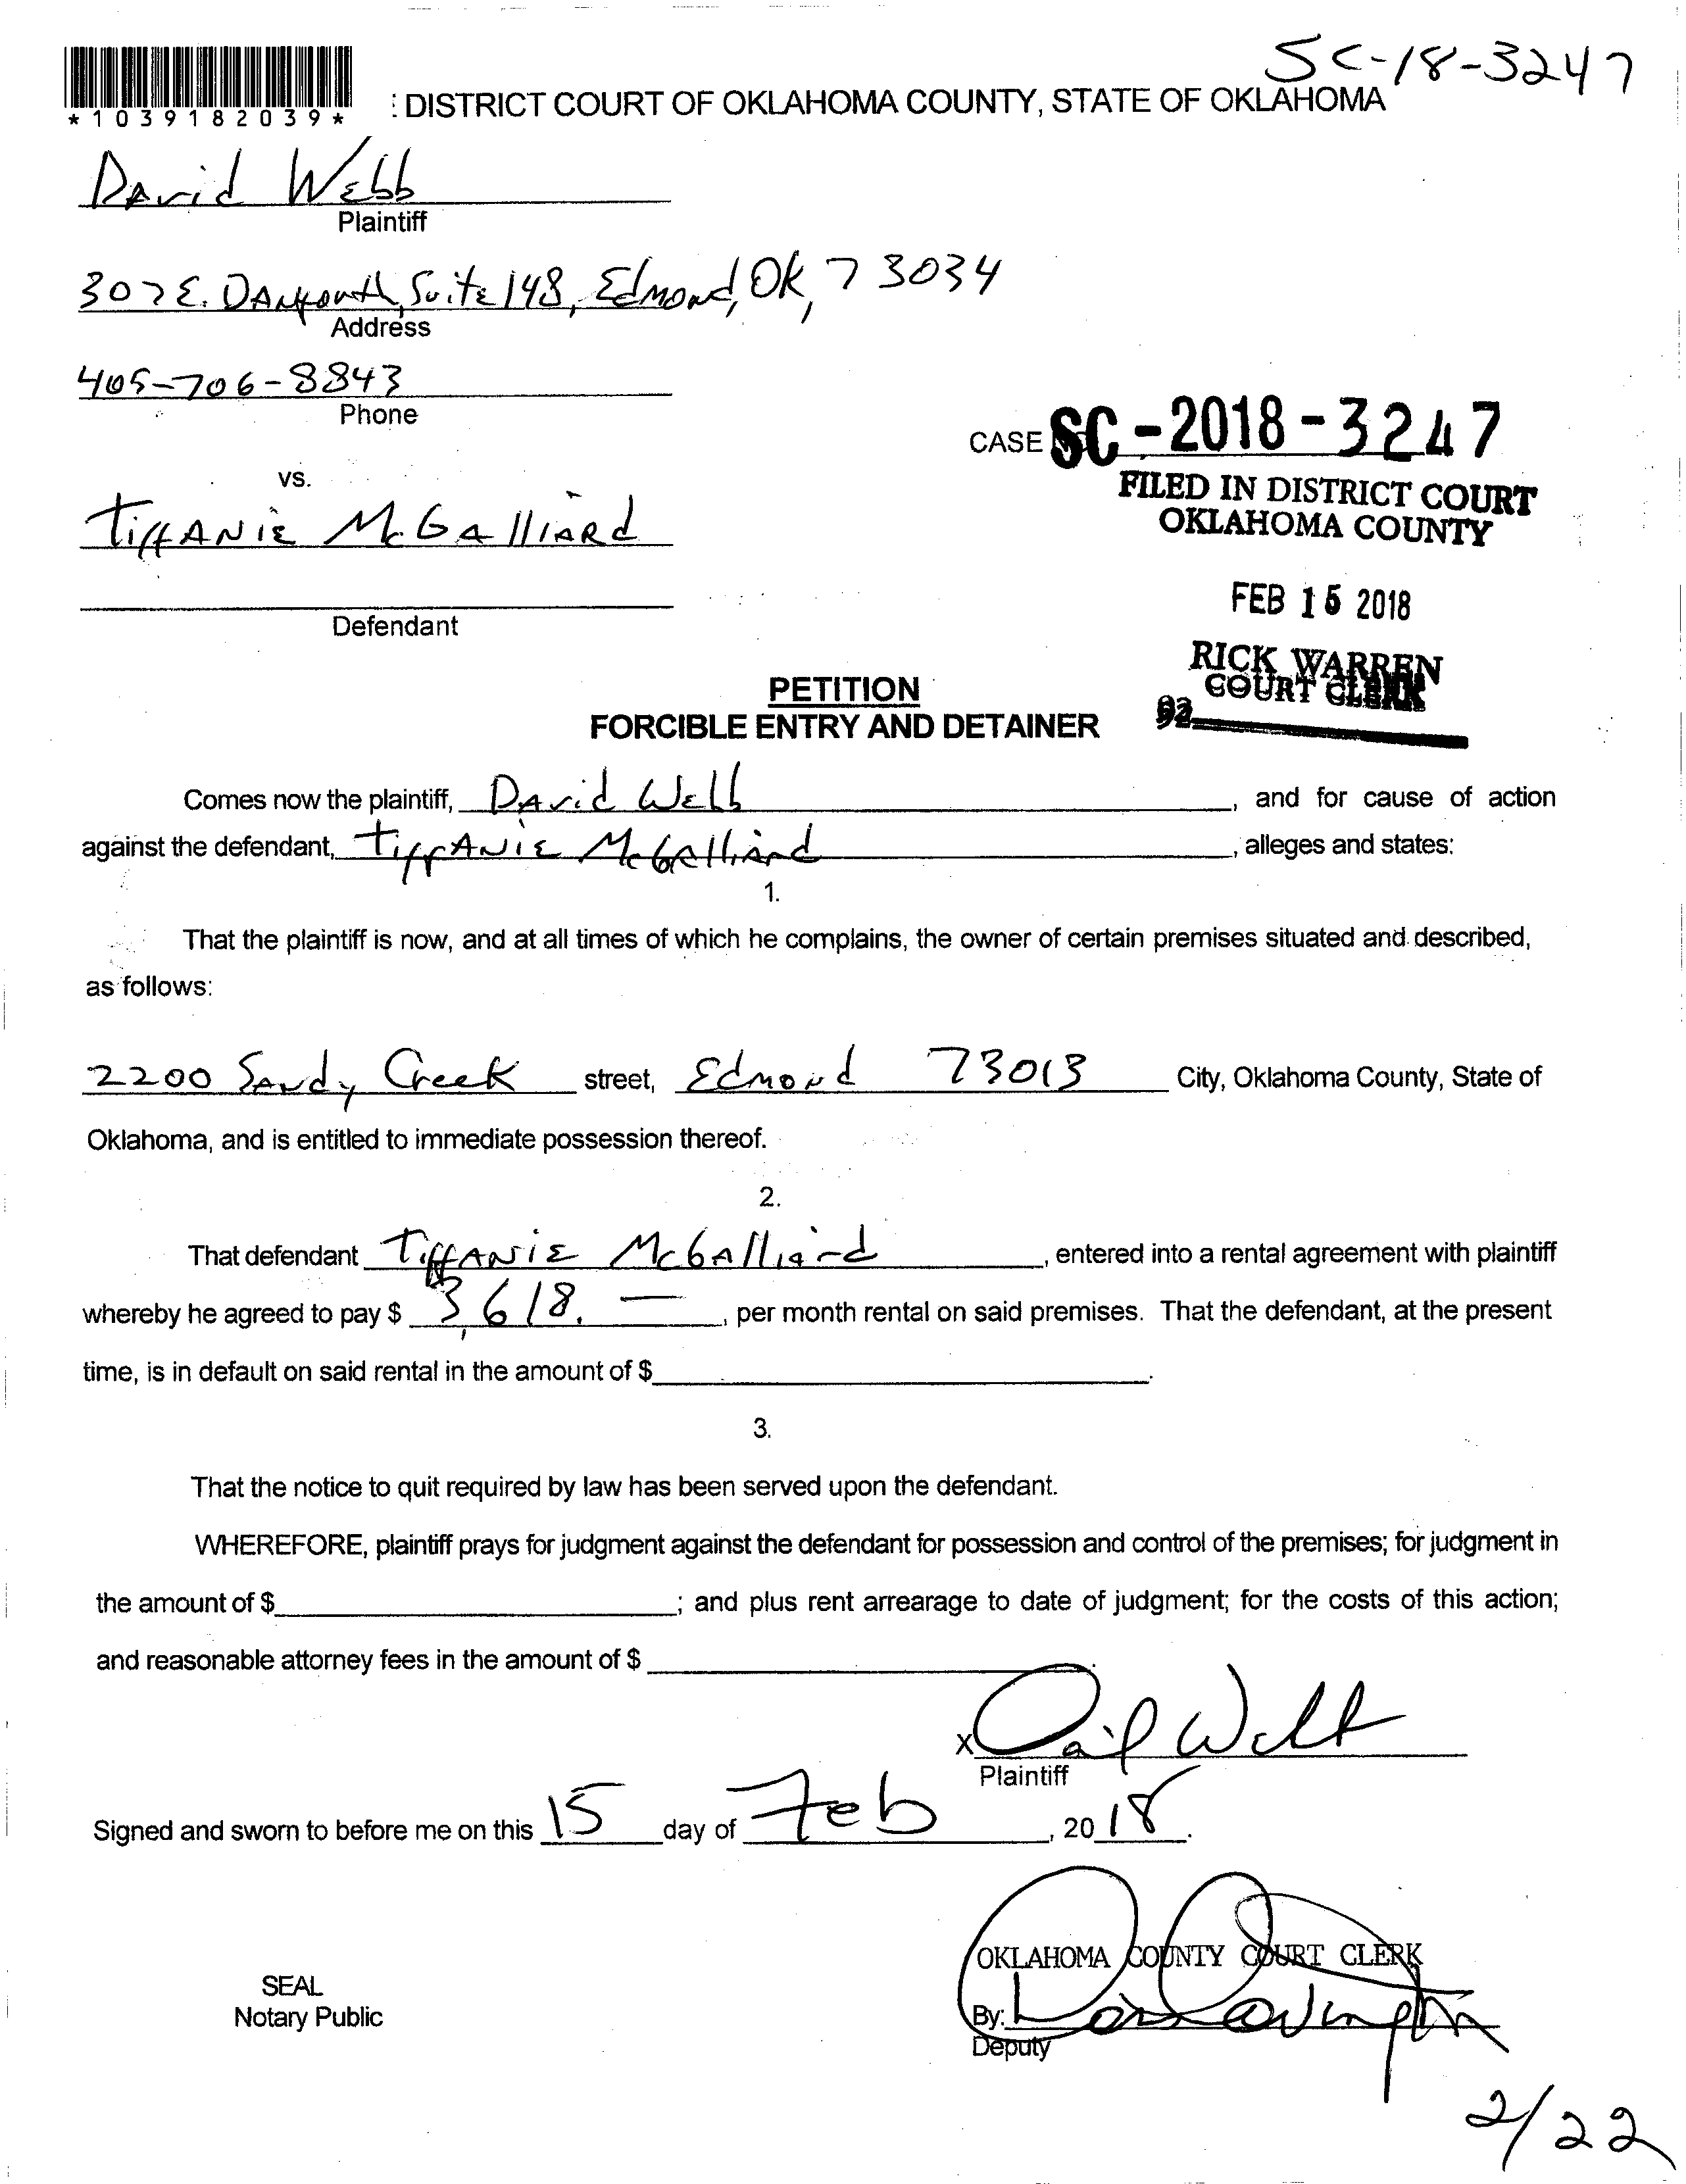 SC-18-3247
*1039182039*
: DISTRICT COURT OF OKLAHOMA COUNTY, STATE OF OKLAHOMA
David Webb
Plaintiff
307 E. Danforth, Suite 148, Edmond, OK, 73034
Address
405-706-8843
Phone
CASE SC-2018-3247
vs.
FILED IN DISTRICT COURT
OKLAHOMA COUNTY
Tiffanie McGalliard
FEB 15 2018
Defendant
RICK WARREN
COURT CLERK
PETITION
FORCIBLE ENTRY AND DETAINER
Comes now the plaintiff, David Webb, and for cause of action
against the defendant, Tiffanie McGalliard, alleges and states:
1.
That the plaintiff is now, and at all times of which he complains, the owner of certain premises situated and described,
as follows:
2200 Sandy Creek street, Edmond 73013 City, Oklahoma County, State of
Oklahoma, and is entitled to immediate possession thereof.
2.
That defendant Tiffanie McGalliard, entered into a rental agreement with plaintiff
whereby he agreed to pay $ 3,618.—, per month rental on said premises. That the defendant, at the present
time, is in default on said rental in the amount of $ .
3.
That the notice to quit required by law has been served upon the defendant.
WHEREFORE, plaintiff prays for judgment against the defendant for possession and control of the premises; for judgment in
the amount of $ ; and plus rent arrearage to date of judgment; for the costs of this action;
and reasonable attorney fees in the amount of $
X David Webb
Plaintiff
Signed and sworn to before me on this 15 day of Feb, 2018.
OKLAHOMA COUNTY COURT CLERK
SEAL
Notary Public
By:
Deputy
2/22